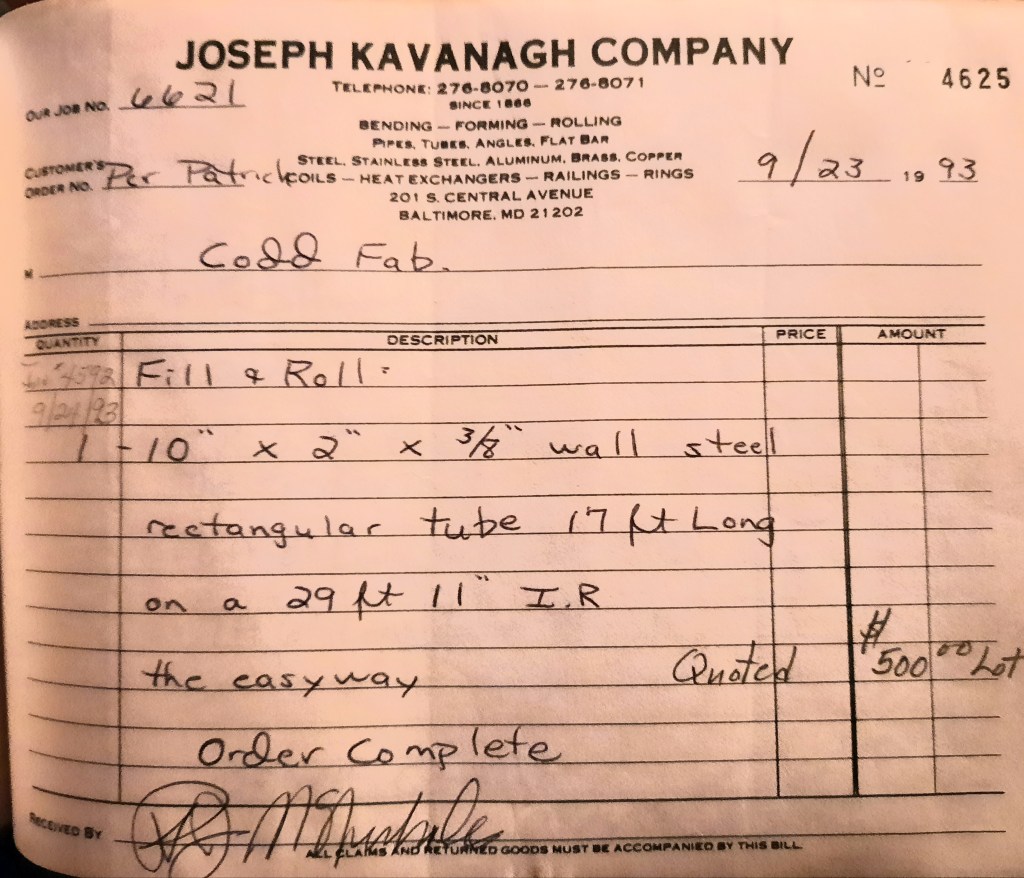 JOSEPH KAVANAGH COMPANY
TELEPHONE: 276-8070 — 276-8071
Nº 4625
OUR JOB NO. 6621
SINCE 1866
BENDING — FORMING — ROLLING
PIPES, TUBES, ANGLES, FLAT BAR
STEEL, STAINLESS STEEL, ALUMINUM, BRASS, COPPER
CUSTOMER'S ORDER NO. Per Patrick
COILS — HEAT EXCHANGERS — RAILINGS — RINGS
9/23 19 93
201 S. CENTRAL AVENUE
BALTIMORE, MD 21202
M Codd Fab.
ADDRESS
QUANTITY DESCRIPTION PRICE AMOUNT
4592 Fill & Roll:
9/24/93
1 - 10" x 2" x 3/8" wall steel
rectangular tube 17 ft Long
on a 29 ft 11" I.R
the easyway Quoted $500 00 Lot
Order Complete
RECEIVED BY
ALL CLAIMS AND RETURNED GOODS MUST BE ACCOMPANIED BY THIS BILL